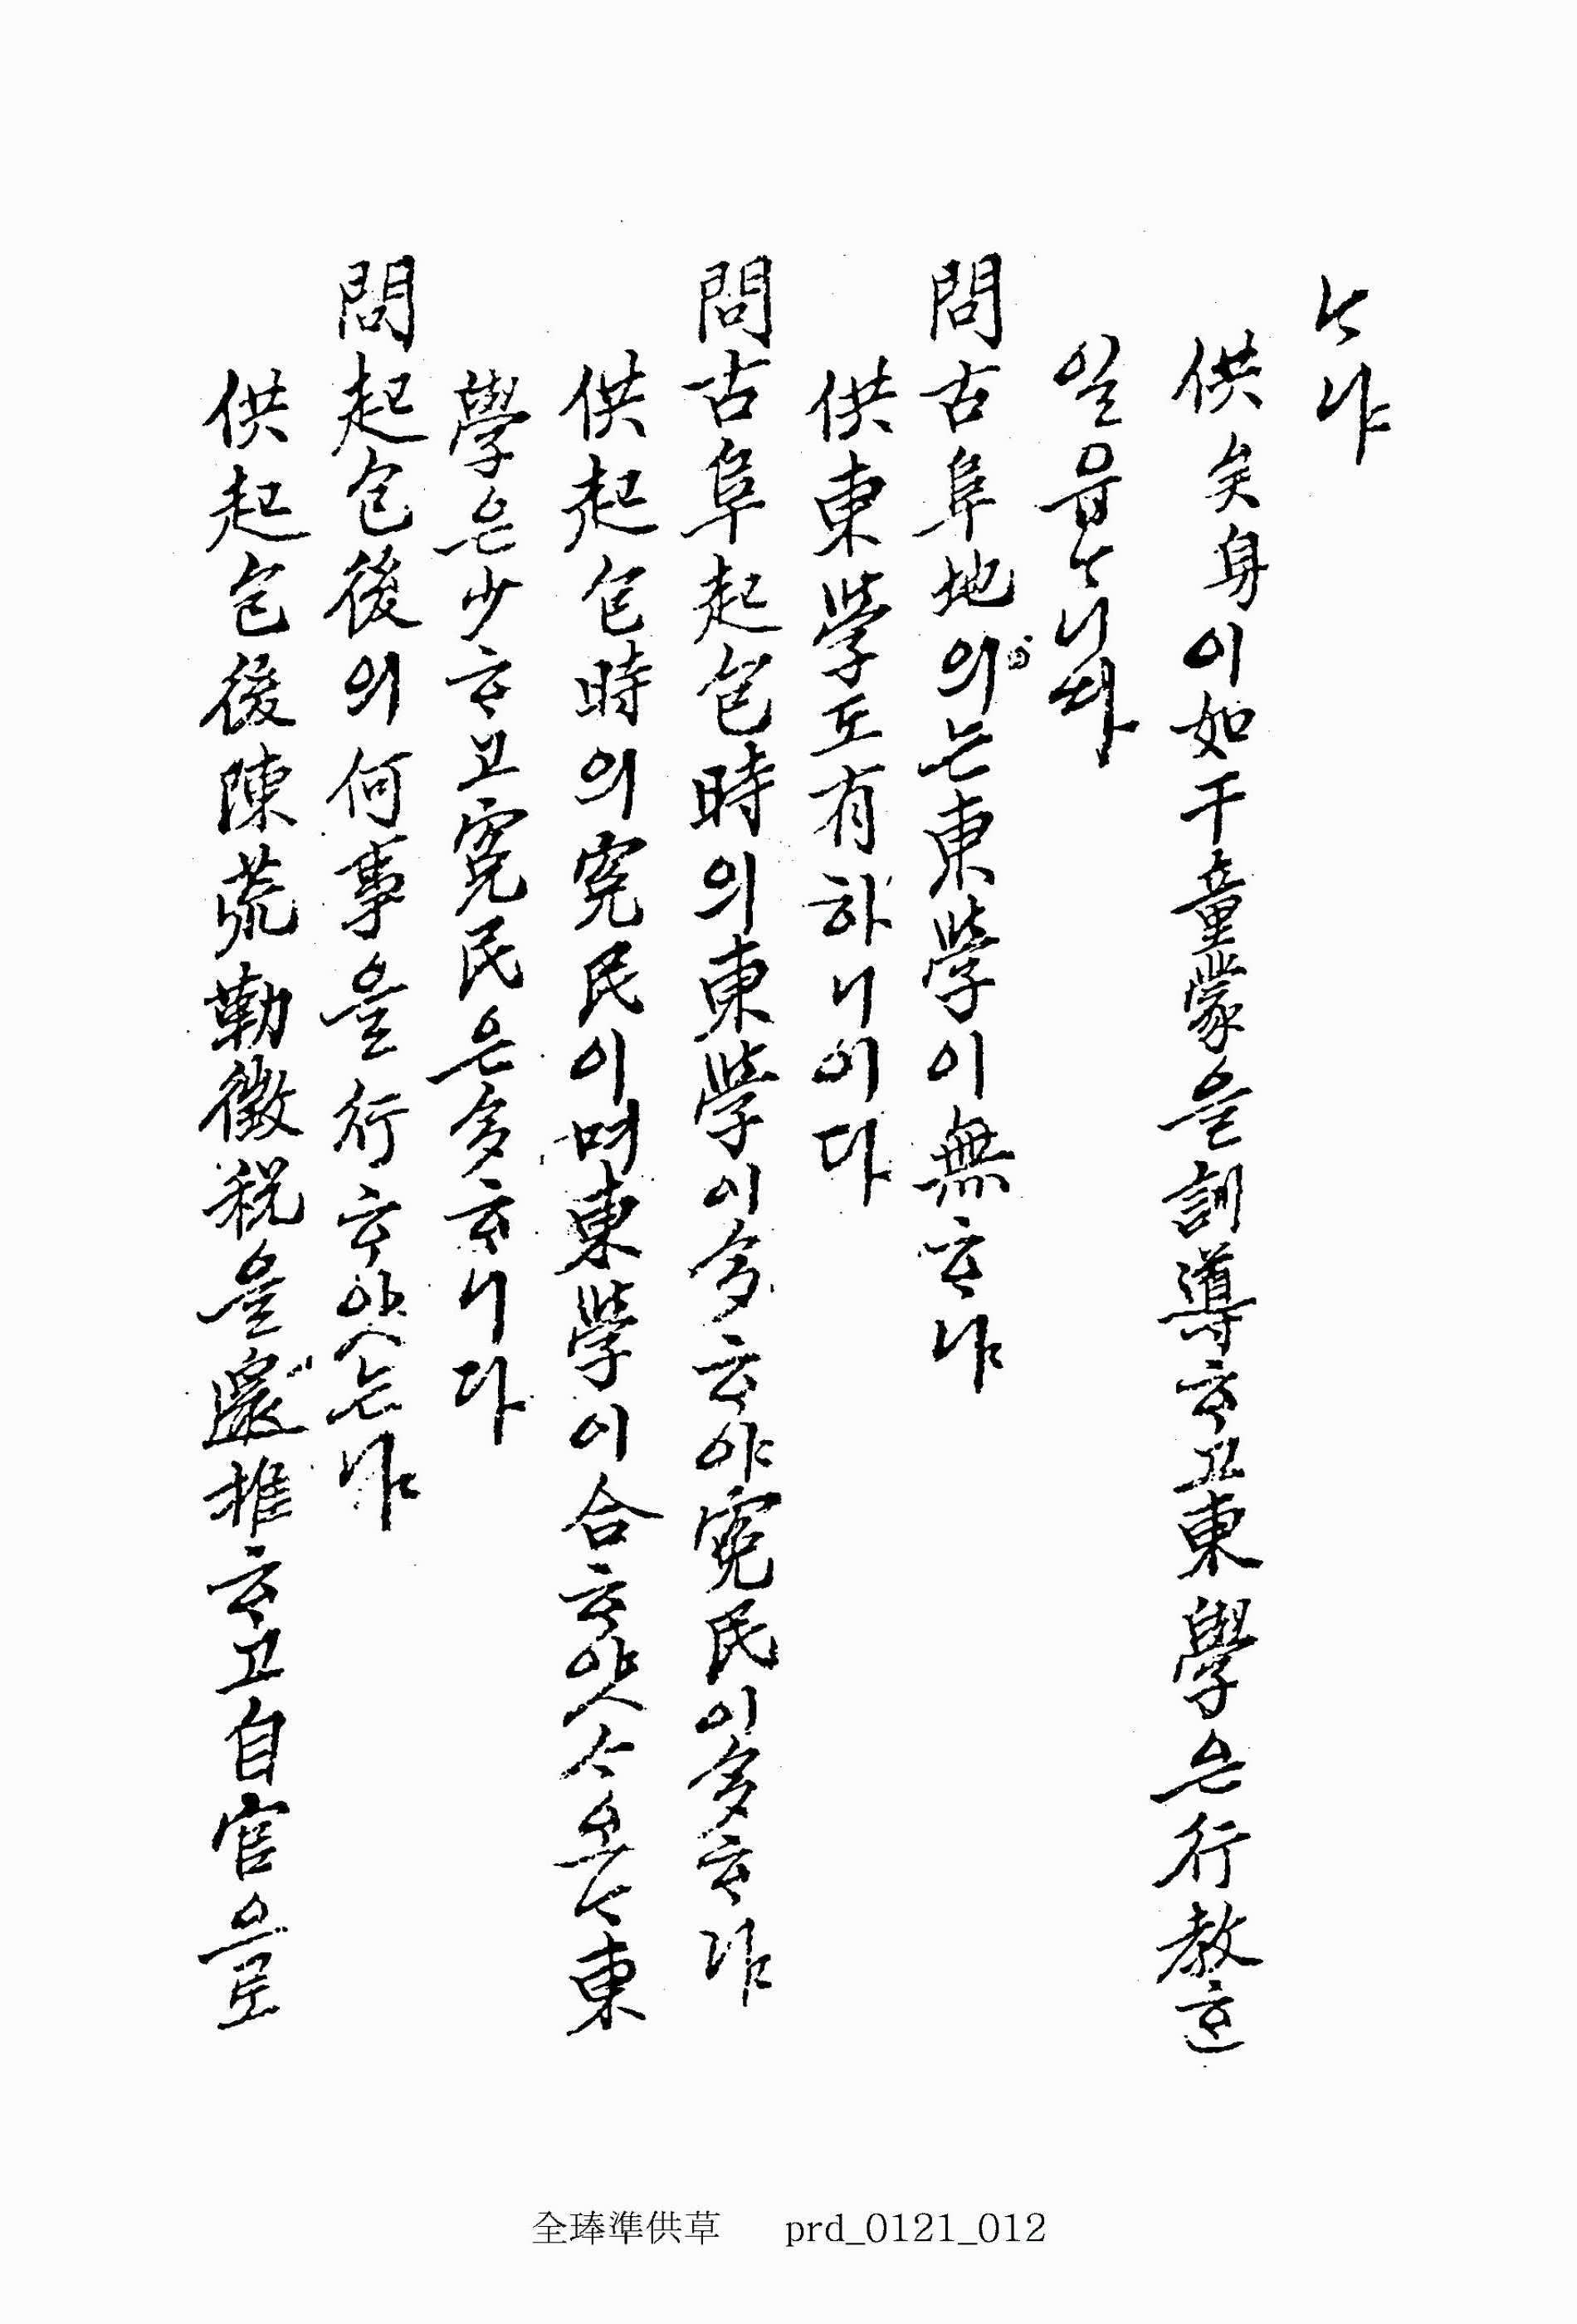 ᄂᆞ냐
供矣身이如干童蒙을訓導ᄒᆞ고東學은行敎ᄒᆞᆫ
일읍ᄂᆞ니다
問古阜地의ᄂᆞᆫ東學이無ᄒᆞ냐
供東學도有하니이다
問古阜起包時의東學이多ᄒᆞ야寃民이多ᄒᆞ냐
供起包時의寃民이며東學이合ᄒᆞ얏ᄉᆞ오ᄂᆞ東
學은少ᄒᆞ고寃民은多ᄒᆞ니다
問起包後의何事을行ᄒᆞ얏는냐
供起包後陳荒勒徵稅을還推ᄒᆞ고自官으로
全琫準供草 prd_0121_012